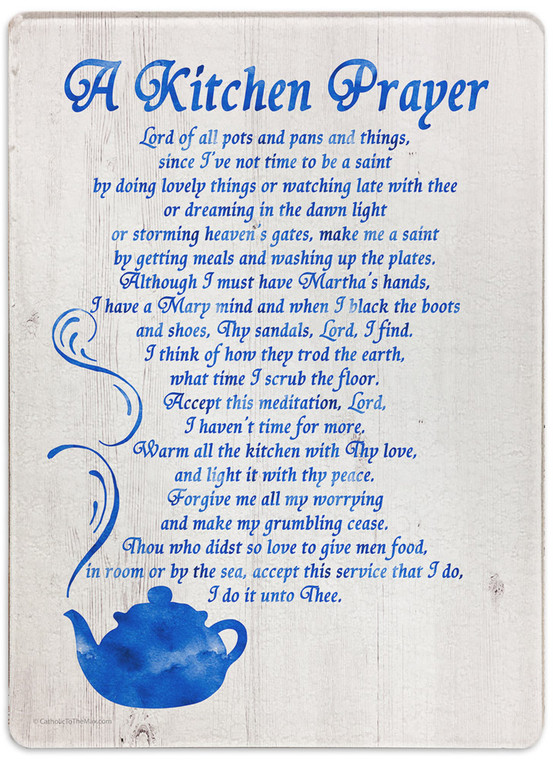 A Kitchen Prayer
Lord of all pots and pans and things,
since I've not time to be a saint
by doing lovely things or watching late with thee
or dreaming in the dawn light
or storming heaven's gates, make me a saint
by getting meals and washing up the plates.
Although I must have Martha's hands,
I have a Mary mind and when I black the boots
and shoes, Thy sandals, Lord, I find.
I think of how they trod the earth,
what time I scrub the floor.
Accept this meditation, Lord,
I haven't time for more.
Warm all the kitchen with Thy love,
and light it with thy peace.
Forgive me all my worrying
and make my grumbling cease.
Thou who didst so love to give men food,
in room or by the sea, accept this service that I do,
I do it unto Thee.
© CatholicToTheMax.com